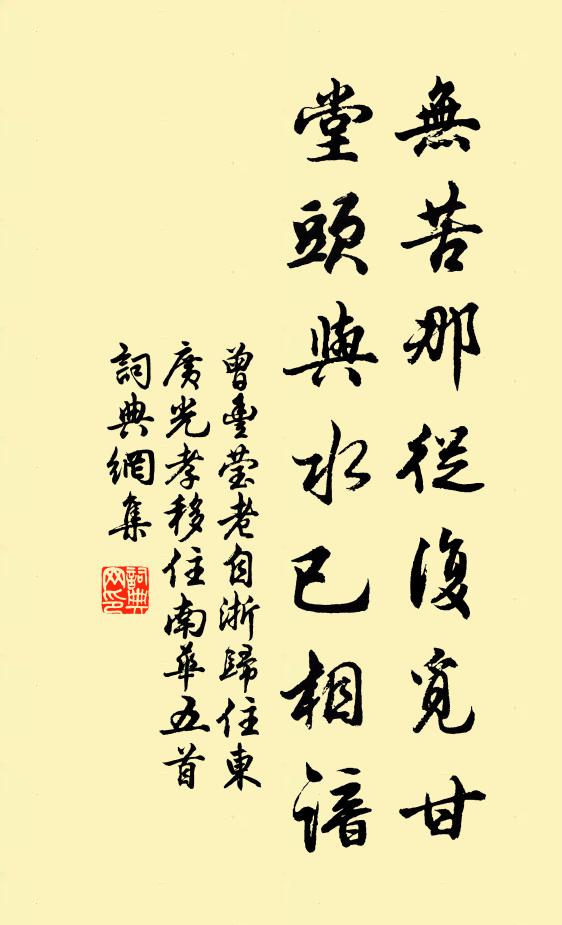 無苦那從復覓甘
堂頭與水已相諳
曾豐瑩老自浙歸住東
廣光孝移住南華五首
詞典網集
詞典
网印